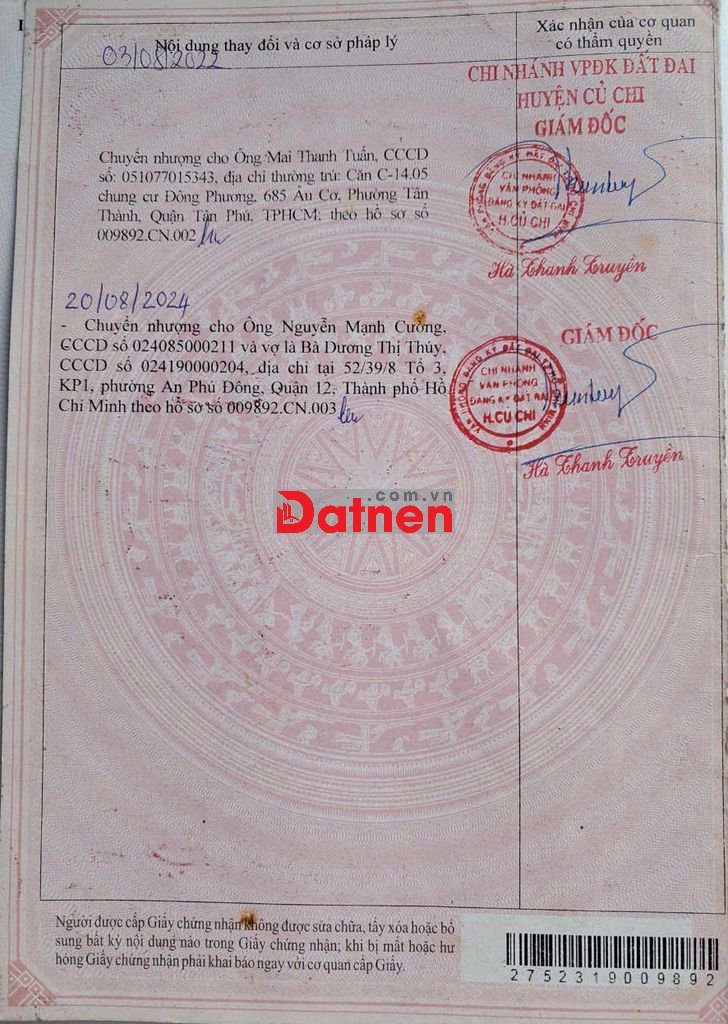 Nội dung thay đổi và cơ sở pháp lý
Xác nhận của cơ quan
có thẩm quyền
03/08/2022
CHI NHÁNH VPĐK ĐẤT ĐAI
HUYỆN CỦ CHI
GIÁM ĐỐC
Chuyển nhượng cho Ông Mai Thanh Tuấn, CCCD
số: 051077015343, địa chỉ thường trú: Căn C-14.05
chung cư Đông Phương, 685 Âu Cơ, Phường Tân
Thành, Quận Tân Phú, TPHCM; theo hồ sơ số
009892.CN.002
CHI NHÁNH
VĂN PHÒNG
ĐĂNG KÝ ĐẤT ĐAI
H.CỦ CHI
Hà Thanh Truyền
20/08/2024
- Chuyển nhượng cho Ông Nguyễn Mạnh Cường,
CCCD số 024085000211 và vợ là Bà Dương Thị Thúy,
CCCD số 024190000204, địa chỉ tại 52/39/8 Tổ 3,
KP1, phường An Phú Đông, Quận 12, Thành phố Hồ
Chí Minh theo hồ sơ số 009892.CN.003
GIÁM ĐỐC
CHI NHÁNH
VĂN PHÒNG
ĐĂNG KÝ ĐẤT ĐAI
H.CỦ CHI
Hà Thanh Truyền
.com.vn
Datnen
Người được cấp Giấy chứng nhận không được sửa chữa, tẩy xóa hoặc bổ
sung bất kỳ nội dung nào trong Giấy chứng nhận; khi bị mất hoặc hư
hỏng Giấy chứng nhận phải khai báo ngay với cơ quan cấp Giấy.
2752319009892